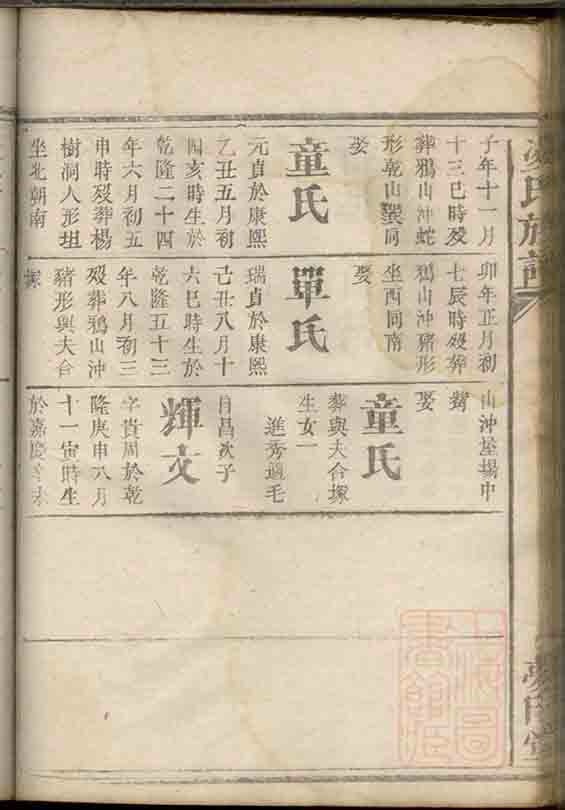 氏族譜
子年十一月
十三巳時歿
葬鴉山冲蛇
形乾山巽向
娶
童氏
元貞於康熙
乙丑五月初
四亥時生於
乾隆二十四
年六月初五
申時歿葬楊
樹洞人形坦
坐北朝南
卯年正月初
七辰時歿葬
鴉山冲豬形
坐西向南
娶
單氏
瑞貞於康熙
己丑八月十
六巳時生於
乾隆五十三
年八月初三
歿葬鴉山冲
豬形與夫合
塚
山冲屋場中
娶
童氏
葬與夫合塚
生女一
進秀適毛
自昌次子
輝文
字貴周於乾
隆庚申八月
十一寅時生
於嘉慶
上海圖
書館藏